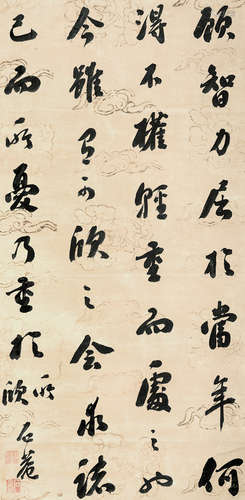 顧智力屈於當年何
得不權輕重而處之也
今雖有可欣之會求諸
己而所憂乃重於所欣
石菴